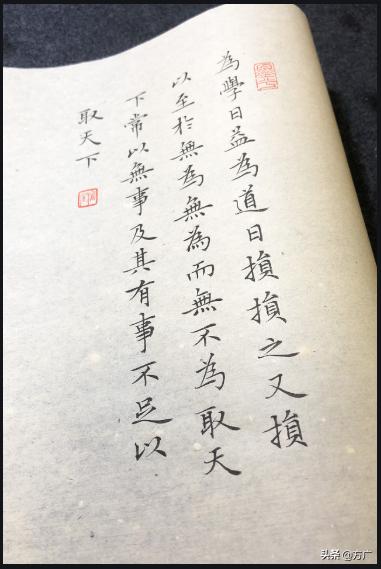 為學日益為道日損損之又損
以至於無為無為而無不為取天
下常以無事及其有事不足以
取天下
头条@方广